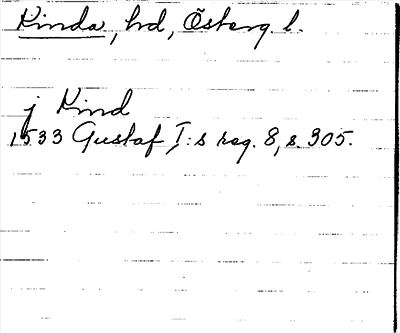 Kinda, hrd, Österg. l.
j Kind
1533 Gustaf I:s reg. 8, s. 305.